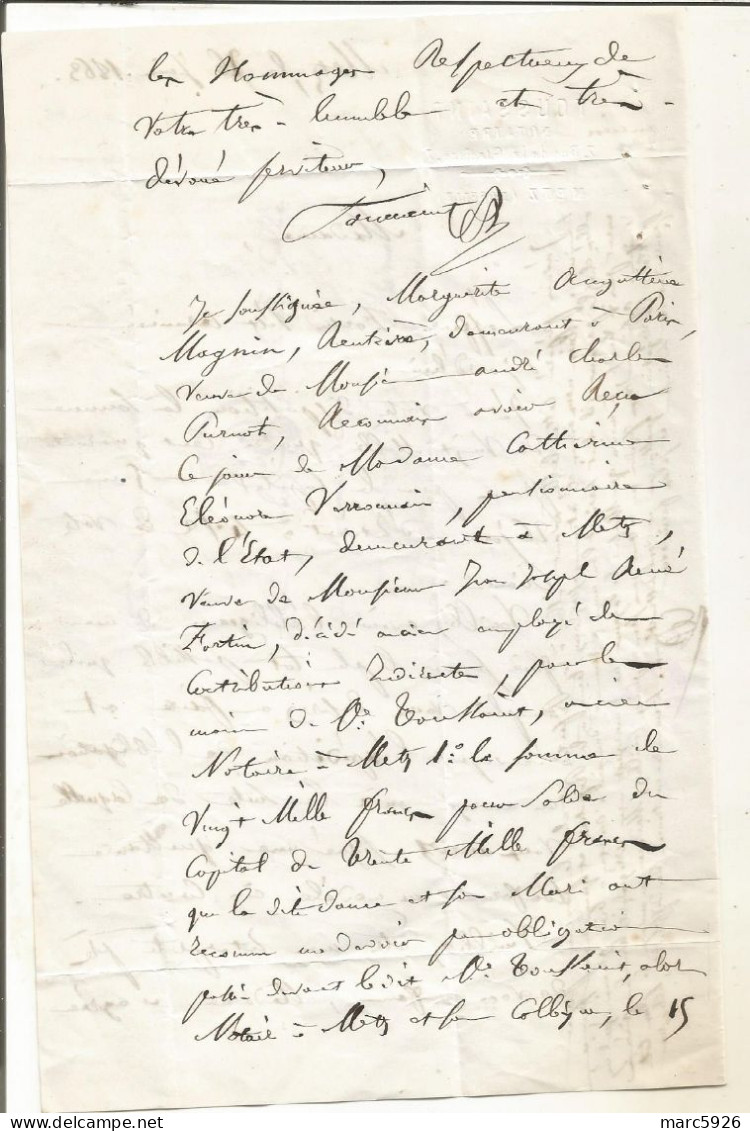 les Hommages Respectueux de
Votre très-humble et très-
dévoué serviteur,
Toussaint
Je soussignée, Marguerite
Magnin, Rentière, demeurant à Paris,
veuve de Monsieur andré Charles
Purnot, Reconnais avoir Reçu
Ce jour de Madame Catherine
Eléonore Verronais, pensionnaire
de l'Etat, demeurant à Metz,
veuve de Monsieur Jean Joseph René
Fortin, décédé ancien employé des
Contributions Indirectes, par les
mains de Me. Toussaint, ancien
Notaire à Metz 1o. la somme de
Vingt Mille francs pour Solde du
Capital de Trente Mille francs
que la dite dame et son Mari ont
reconnu me devoir par obligation
passée devant le dit Me. Toussaint, alors
Notaire à Metz et son Collègue, le 15
marc5926